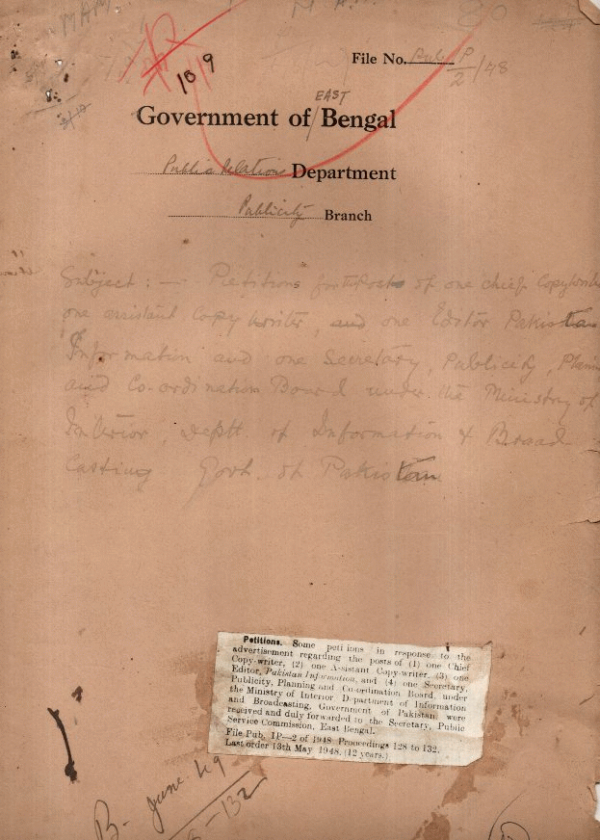 189
File No. Pub. P 2/48
EAST
Government of / Bengal
Public Relations Department
Publicity Branch
Subject :— Petitions for Posts of one chief Copywriter
one assistant Copy writer and one Editor Pakistan
Information and one Secretary, Publicity, Plann
and Co-ordination Board under the Ministry of
Interior, Deptt. of Information & Broad
casting Govt. of Pakistan
Petitions. Some petitions in response to the
advertisement regarding the posts of (1) one Chief
Copy-writer, (2) one Assistant Copy-writer (3) one
Editor, Pakistan Information, and (4) one Secretary,
Publicity, Planning and Co-ordination Board, under
the Ministry of Interior Department of Information
and Broadcasting, Government of Pakistan were
received and duly forwarded to the Secretary, Public
Service Commission, East Bengal.
File Pub. 1P—2 of 1948 Proceedings 128 to 132.
Last order 13th May 1948. (12 years.)
B. June 49
132